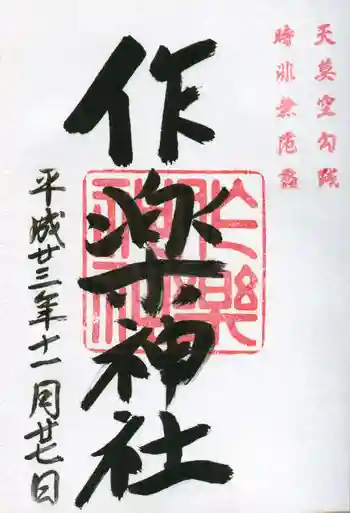 天莫空勾践
時非無范蠡
作楽神社
作樂
神社
平成廿三年十一月廿七日